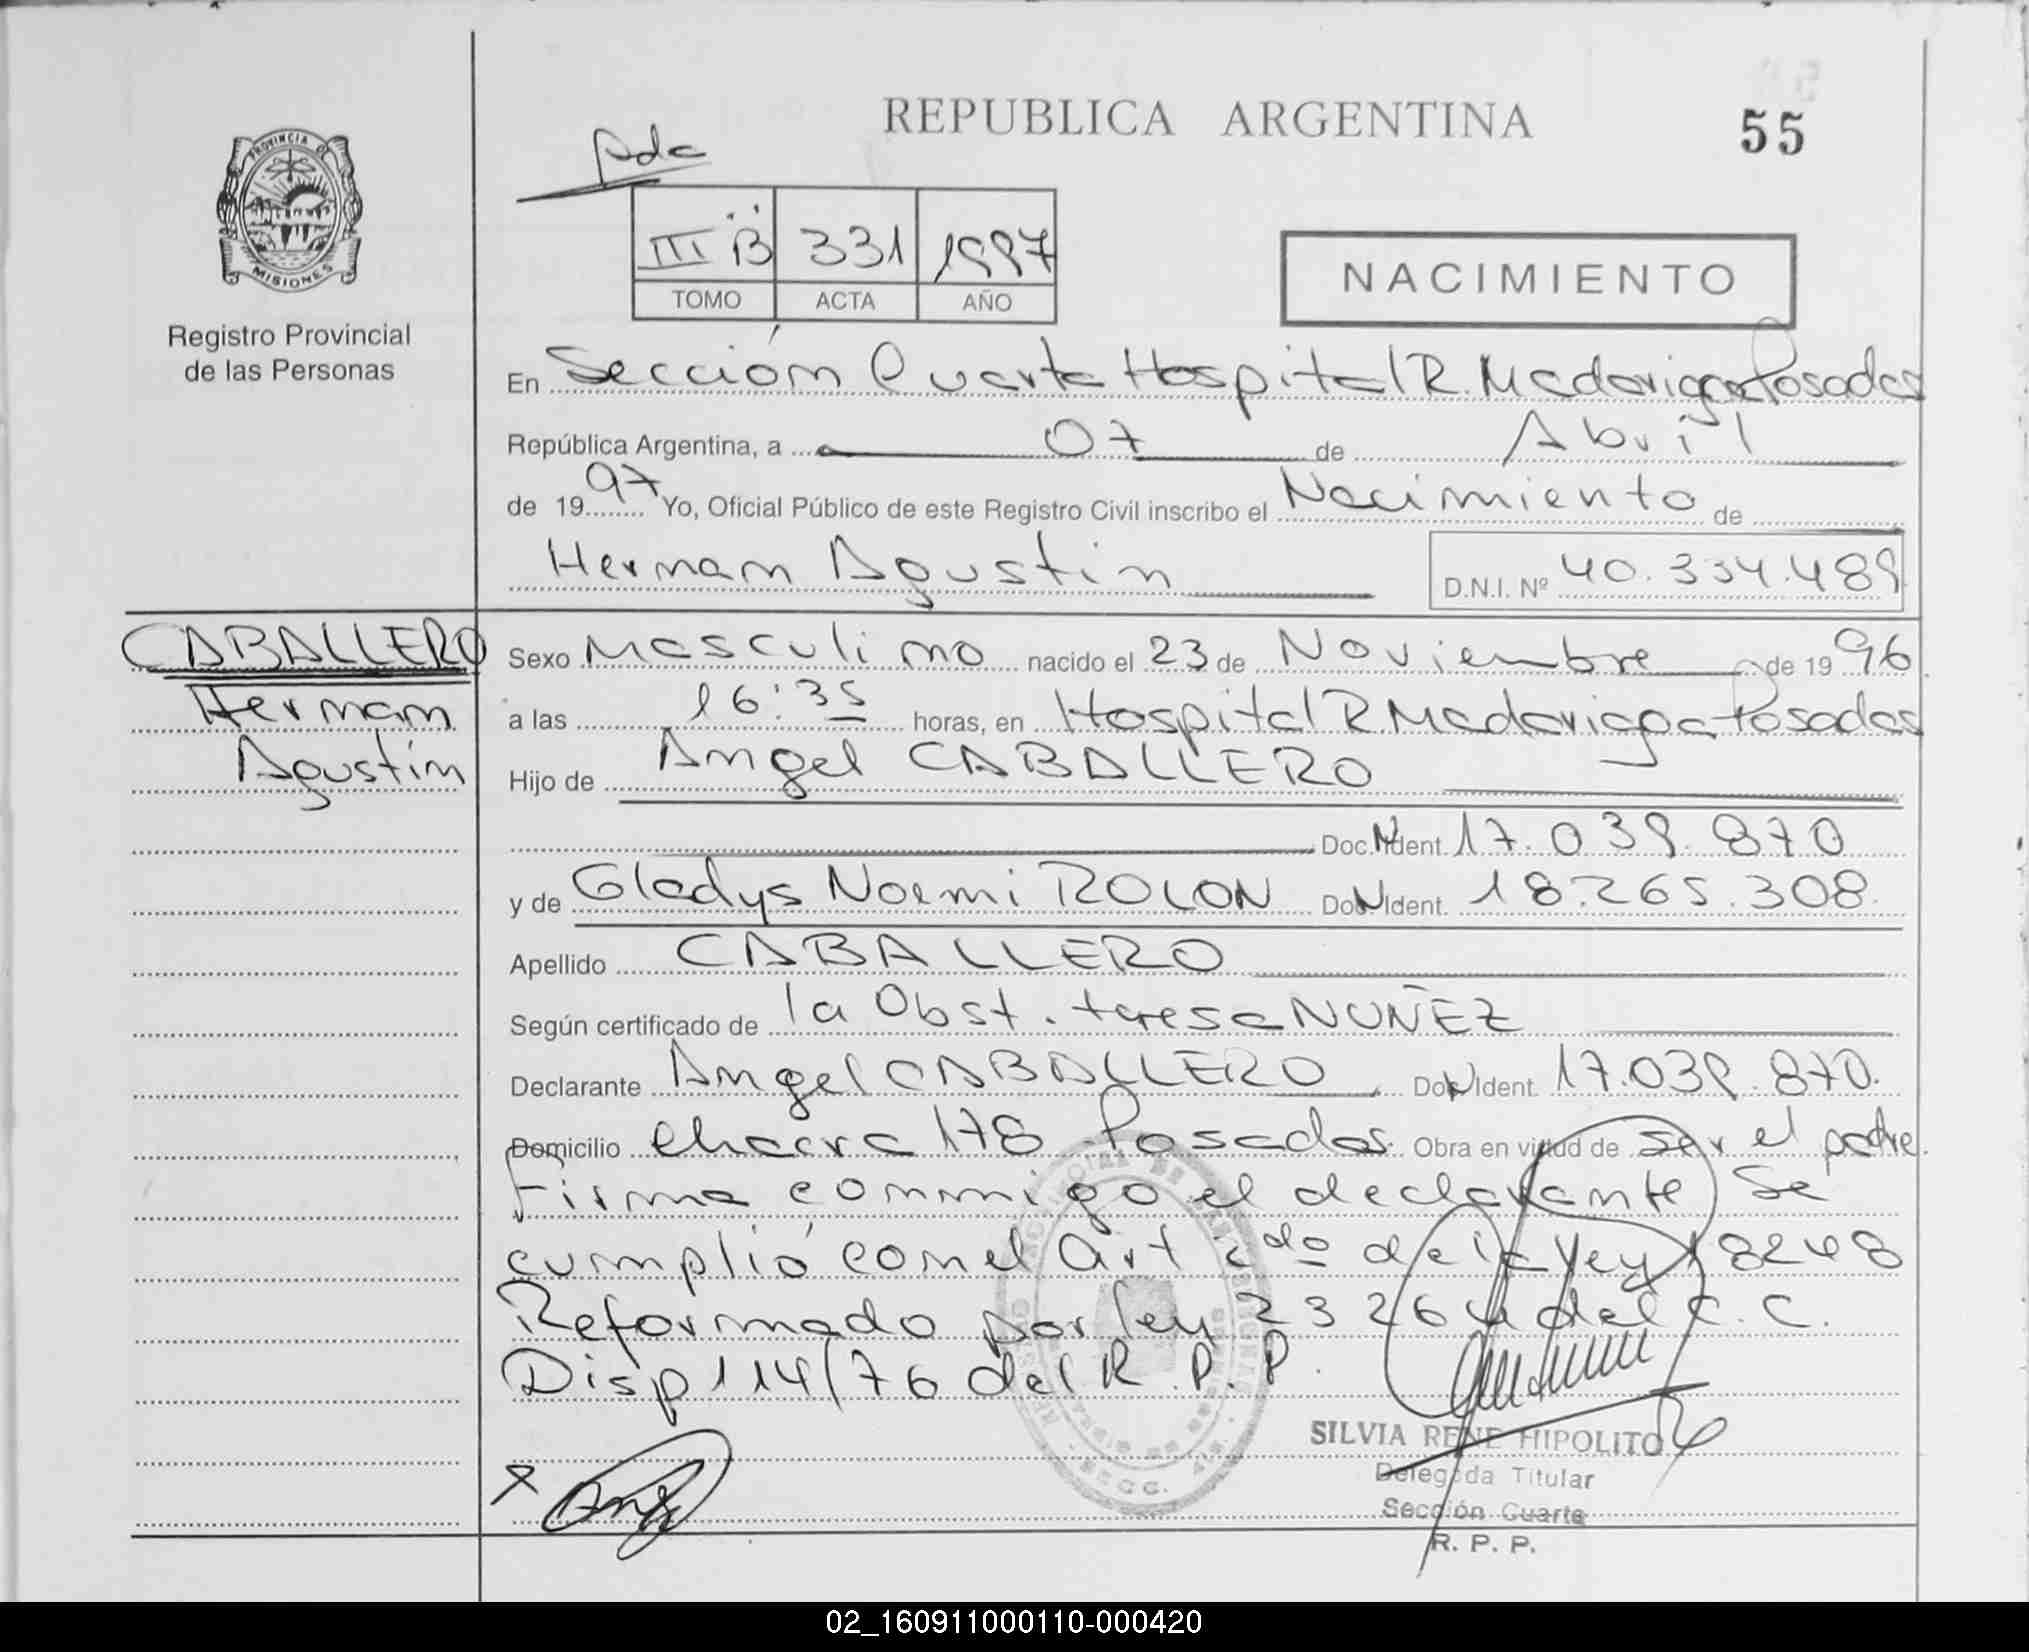 REPUBLICA ARGENTINA
55
PROVINCIA DE
MISIONES
Registro Provincial
de las Personas
III B 331 1997
TOMO ACTA AÑO
NACIMIENTO
En Sección Cuarta Hospital R. Madariaga Posadas
República Argentina, a 07 de Abril
de 1997 Yo, Oficial Público de este Registro Civil inscribo el Nacimiento de
Hernan Agustin D.N.I. Nº 40.334.489
CABALLERO
Hernan
Agustin
Sexo Masculino nacido el 23 de Noviembre de 1996
a las 16:35 horas, en Hospital R. Madariaga Posadas
Hijo de Angel CABALLERO
Doc. Ident. 17.039.870
y de Gladys Noemi ROLON Doc. Ident. 18.265.308
Apellido CABALLERO
Según certificado de la Obst. teresa NUÑEZ
Declarante Angel CABALLERO Doc. Ident. 17.039.870.
Domicilio chacra 178 Posadas. Obra en virtud de ser el padre
firma conmigo el declarante Se
cumplió con el Art 2do de la Ley 18248
Reformado por ley 23264 del C.C.
Disp 114/76 del R.P.P.
SILVIA RENE HIPOLITO
Delegada Titular
Sección Cuarta
R. P. P.
02_160911000110-000420